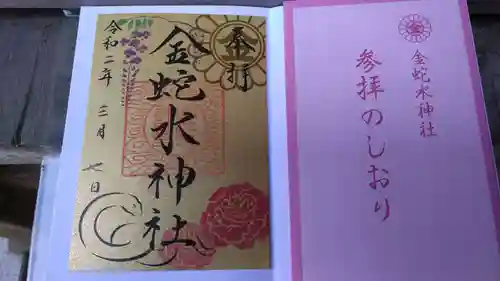 奉拝
金蛇水神社
令和二年 三月 七日
金蛇水神社
参拝のしおり